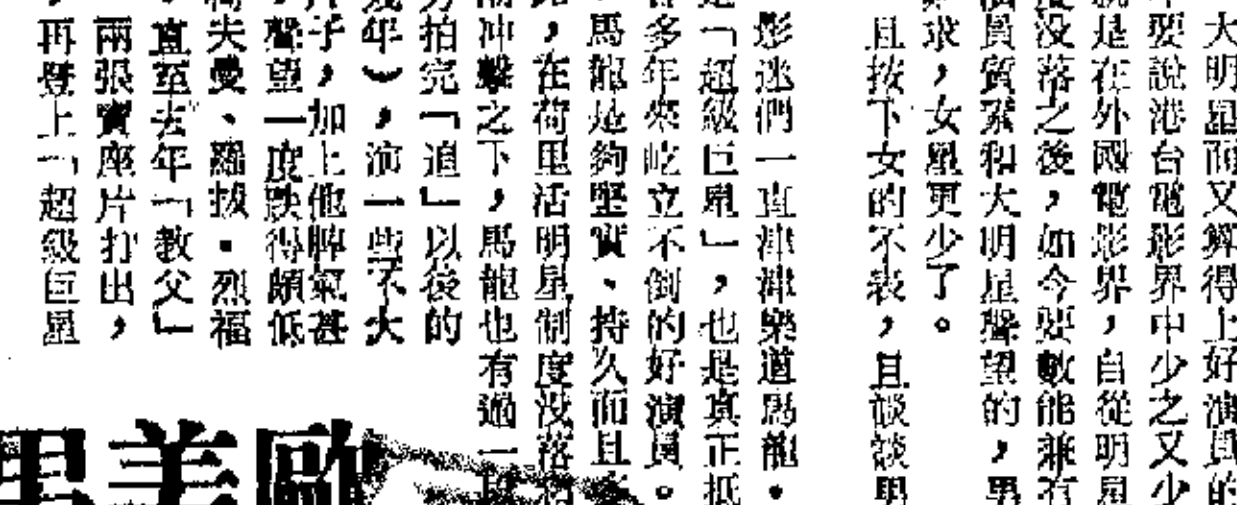 大明星而又算得上好演員的
要說港台電影界中少之又少
是在外國電影界，自從明星
没落之後，如今要數能兼有
員質素和大明星聲望的，男
求，女星更少了。
且按下女的不表，且談談男
影迷們一直津津樂道馬龍．
「超級巨星」，也是真正抵
多年來屹立不倒的好演員。
馬龍是夠堅實、持久而且
，在荷里活明星制度没落
冲擊之下，馬龍也有過一段
拍完「道」以後的
年），演一些不大
子，加上他脾氣甚
聲望一度跌得頗低
夫曼、羅拔．烈福
直至去年「教父」
兩張賣座片打出，
再登上「超級巨星
歐美男